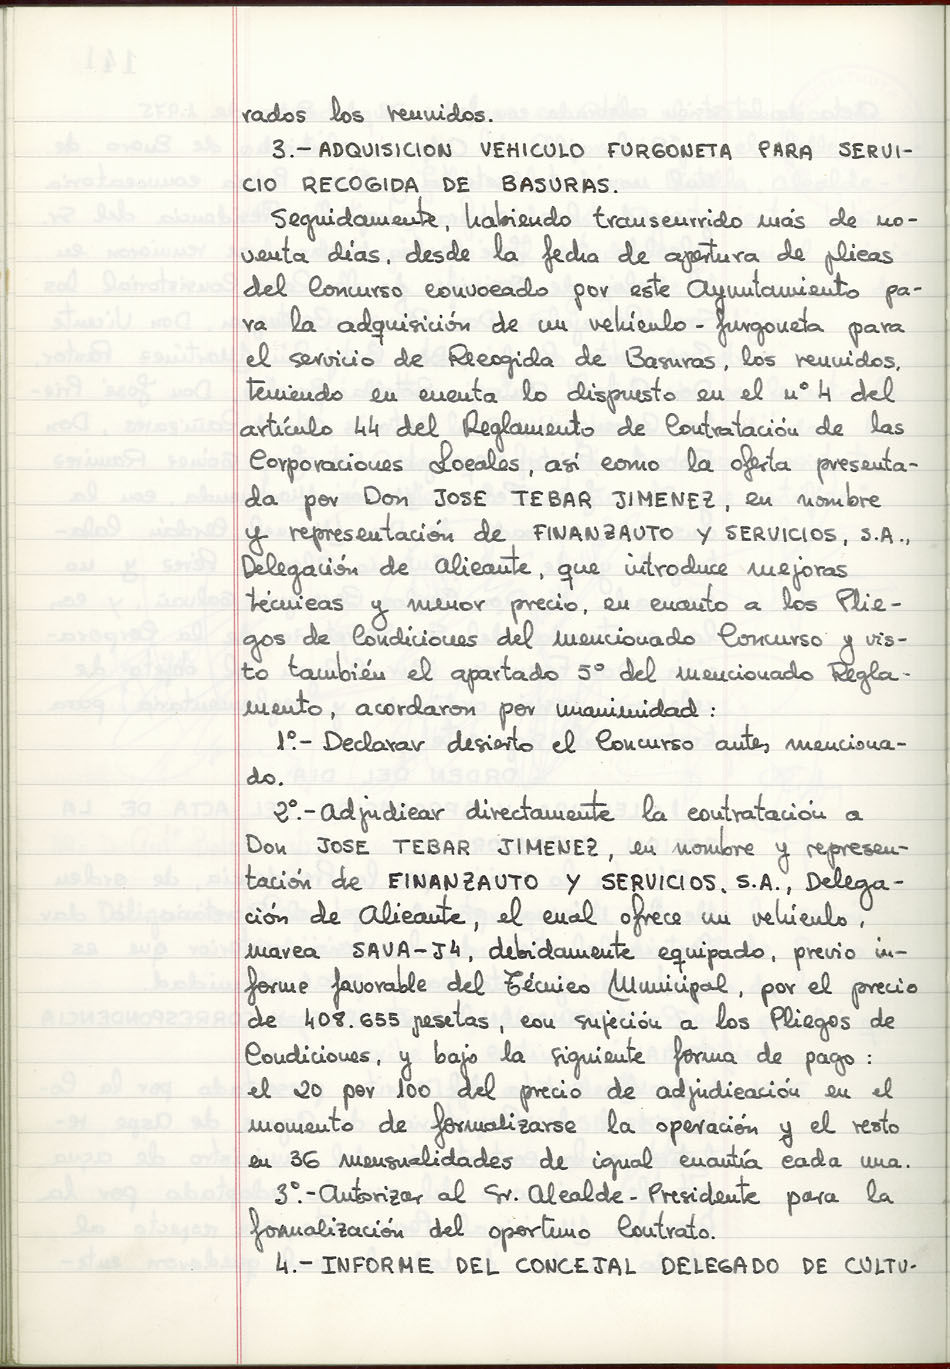 rados los reunidos.
3.- ADQUISICION VEHICULO FURGONETA PARA SERVI-
CIO RECOGIDA DE BASURAS.
Seguidamente, habiendo transcurrido más de no-
venta días, desde la fecha de apertura de plicas
del Concurso convocado por este Ayuntamiento pa-
ra la adquisición de un vehículo - furgoneta para
el servicio de Recogida de Basuras, los reunidos,
teniendo en cuenta lo dispuesto en el nº 4 del
artículo 44 del Reglamento de Contratación de las
Corporaciones Locales, así como la oferta presenta-
da por Don JOSE TEBAR JIMENEZ, en nombre
y representación de FINANZAUTO Y SERVICIOS, S.A.,
Delegación de Alicante, que introduce mejoras
técnicas y menor precio, en cuanto a los Plie-
gos de Condiciones del mencionado Concurso y vis-
to también el apartado 5º del mencionado Regla-
mento, acordaron por unanimidad:
1º.- Declarar desierto el Concurso antes menciona-
do.
2º.- Adjudicar directamente la contratación a
Don JOSE TEBAR JIMENEZ, en nombre y represen-
tación de FINANZAUTO Y SERVICIOS, S.A., Delega-
ción de Alicante, el cual ofrece un vehículo,
marca SAVA-J4, debidamente equipado, previo in-
forme favorable del Técnico Municipal, por el precio
de 408.655 pesetas, con sujeción a los Pliegos de
Condiciones, y bajo la siguiente forma de pago:
el 20 por 100 del precio de adjudicación en el
momento de formalizarse la operación y el resto
en 36 mensualidades de igual cuantía cada una.
3º.- Autorizar al Sr. Alcalde - Presidente para la
formalización del oportuno Contrato.
4.- INFORME DEL CONCEJAL DELEGADO DE CULTU-